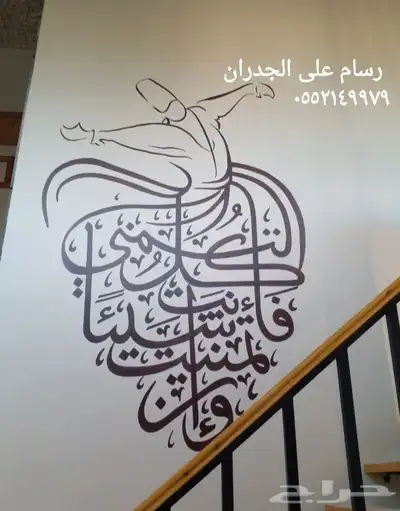 رسام على الجدران
٠٥٥٢١٤٩٩٧٩
وإن
تمنيت
شيئًا
فأنت
كلُّ
التمني
حراج